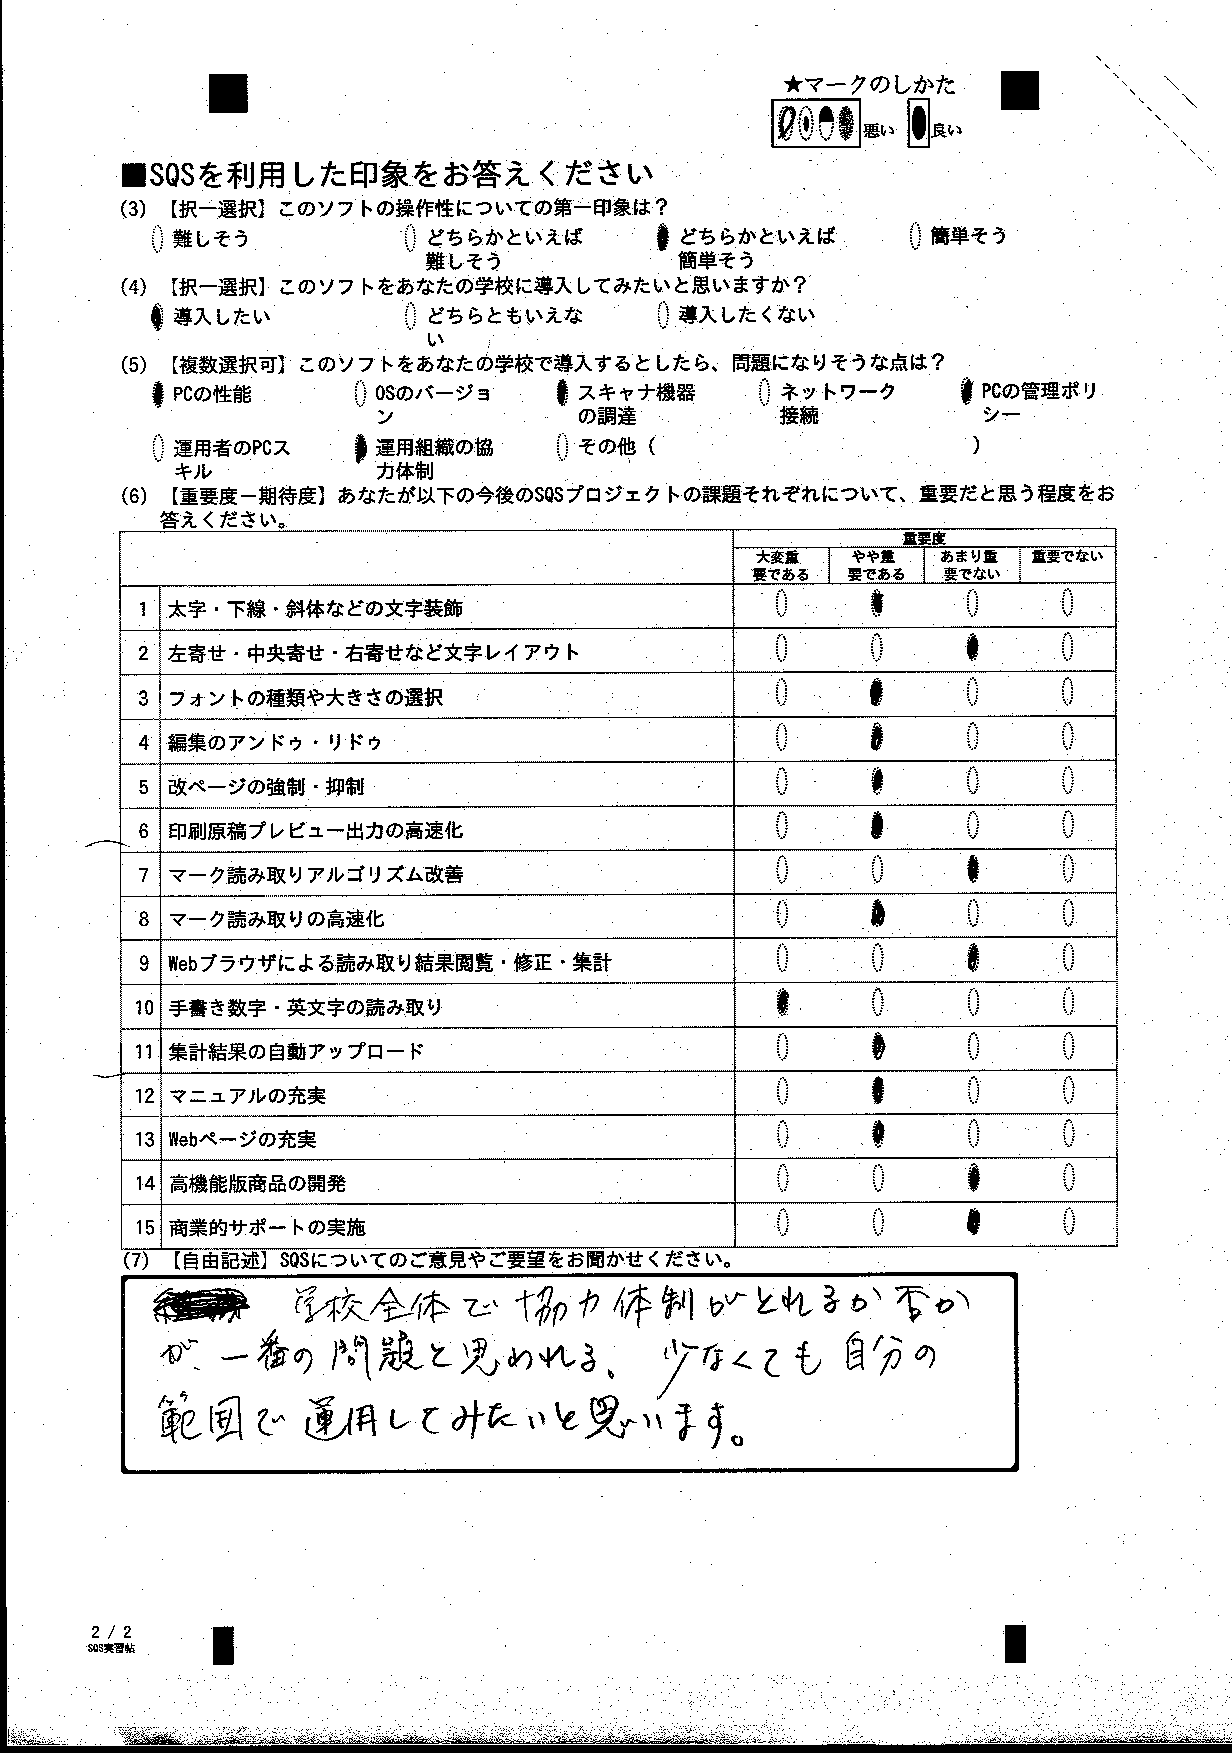 ★マークのしかた
悪い 良い
■SQSを利用した印象をお答えください
(3) 【択一選択】このソフトの操作性についての第一印象は？
難しそう どちらかといえば どちらかといえば 簡単そう
難しそう 簡単そう
(4) 【択一選択】このソフトをあなたの学校に導入してみたいと思いますか？
導入したい どちらともいえな 導入したくない
い
(5) 【複数選択可】このソフトをあなたの学校で導入するとしたら、問題になりそうな点は？
PCの性能 OSのバージョ スキャナ機器 ネットワーク PCの管理ポリ
ン の調達 接続 シー
運用者のPCス 運用組織の協 その他（ ）
キル 力体制
(6) 【重要度－期待度】あなたが以下の今後のSQSプロジェクトの課題それぞれについて、重要だと思う程度をお
答えください。
重要度
大変重 やや重 あまり重 重要でない
要である 要である 要でない
1 太字・下線・斜体などの文字装飾
2 左寄せ・中央寄せ・右寄せなど文字レイアウト
3 フォントの種類や大きさの選択
4 編集のアンドゥ・リドゥ
5 改ページの強制・抑制
6 印刷原稿プレビュー出力の高速化
7 マーク読み取りアルゴリズム改善
8 マーク読み取りの高速化
9 Webブラウザによる読み取り結果閲覧・修正・集計
10 手書き数字・英文字の読み取り
11 集計結果の自動アップロード
12 マニュアルの充実
13 Webページの充実
14 高機能版商品の開発
15 商業的サポートの実施
(7) 【自由記述】SQSについてのご意見やご要望をお聞かせください。
学校全体で協力体制がとれるか否か
が、一番の問題と思われる、少なくても自分の
範囲で運用してみたいと思います。
2 / 2
SQS実習帖